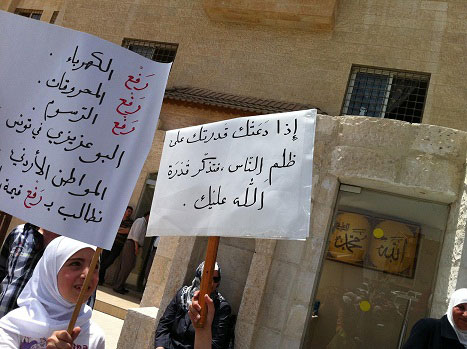 رَفْع الكهرباء.
رَفْع المحروقات.
رَفْع الرّسوم.
البوعزيزي في تونس
المواطن الأردني
نطالب بـ رَفْع قيمة
إذا دَعَتْك قدرتك على
ظلم النّاس، فتذكّر قُدْرَة
اللّه عليك.
محمد
الله